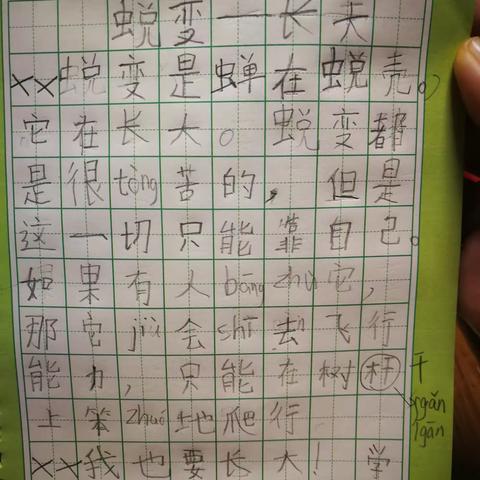 蜕变一长大
××蜕变是蝉在蜕壳。
它在长大。蜕变都
是很tòng苦的，但是
这一切只能靠自己。
如果有人bāng zhù它，
那它jiù会shī去飞行
能力，只能在树杆 干
上笨zhuó地爬行 gǎn
gān
××我也要长大！学